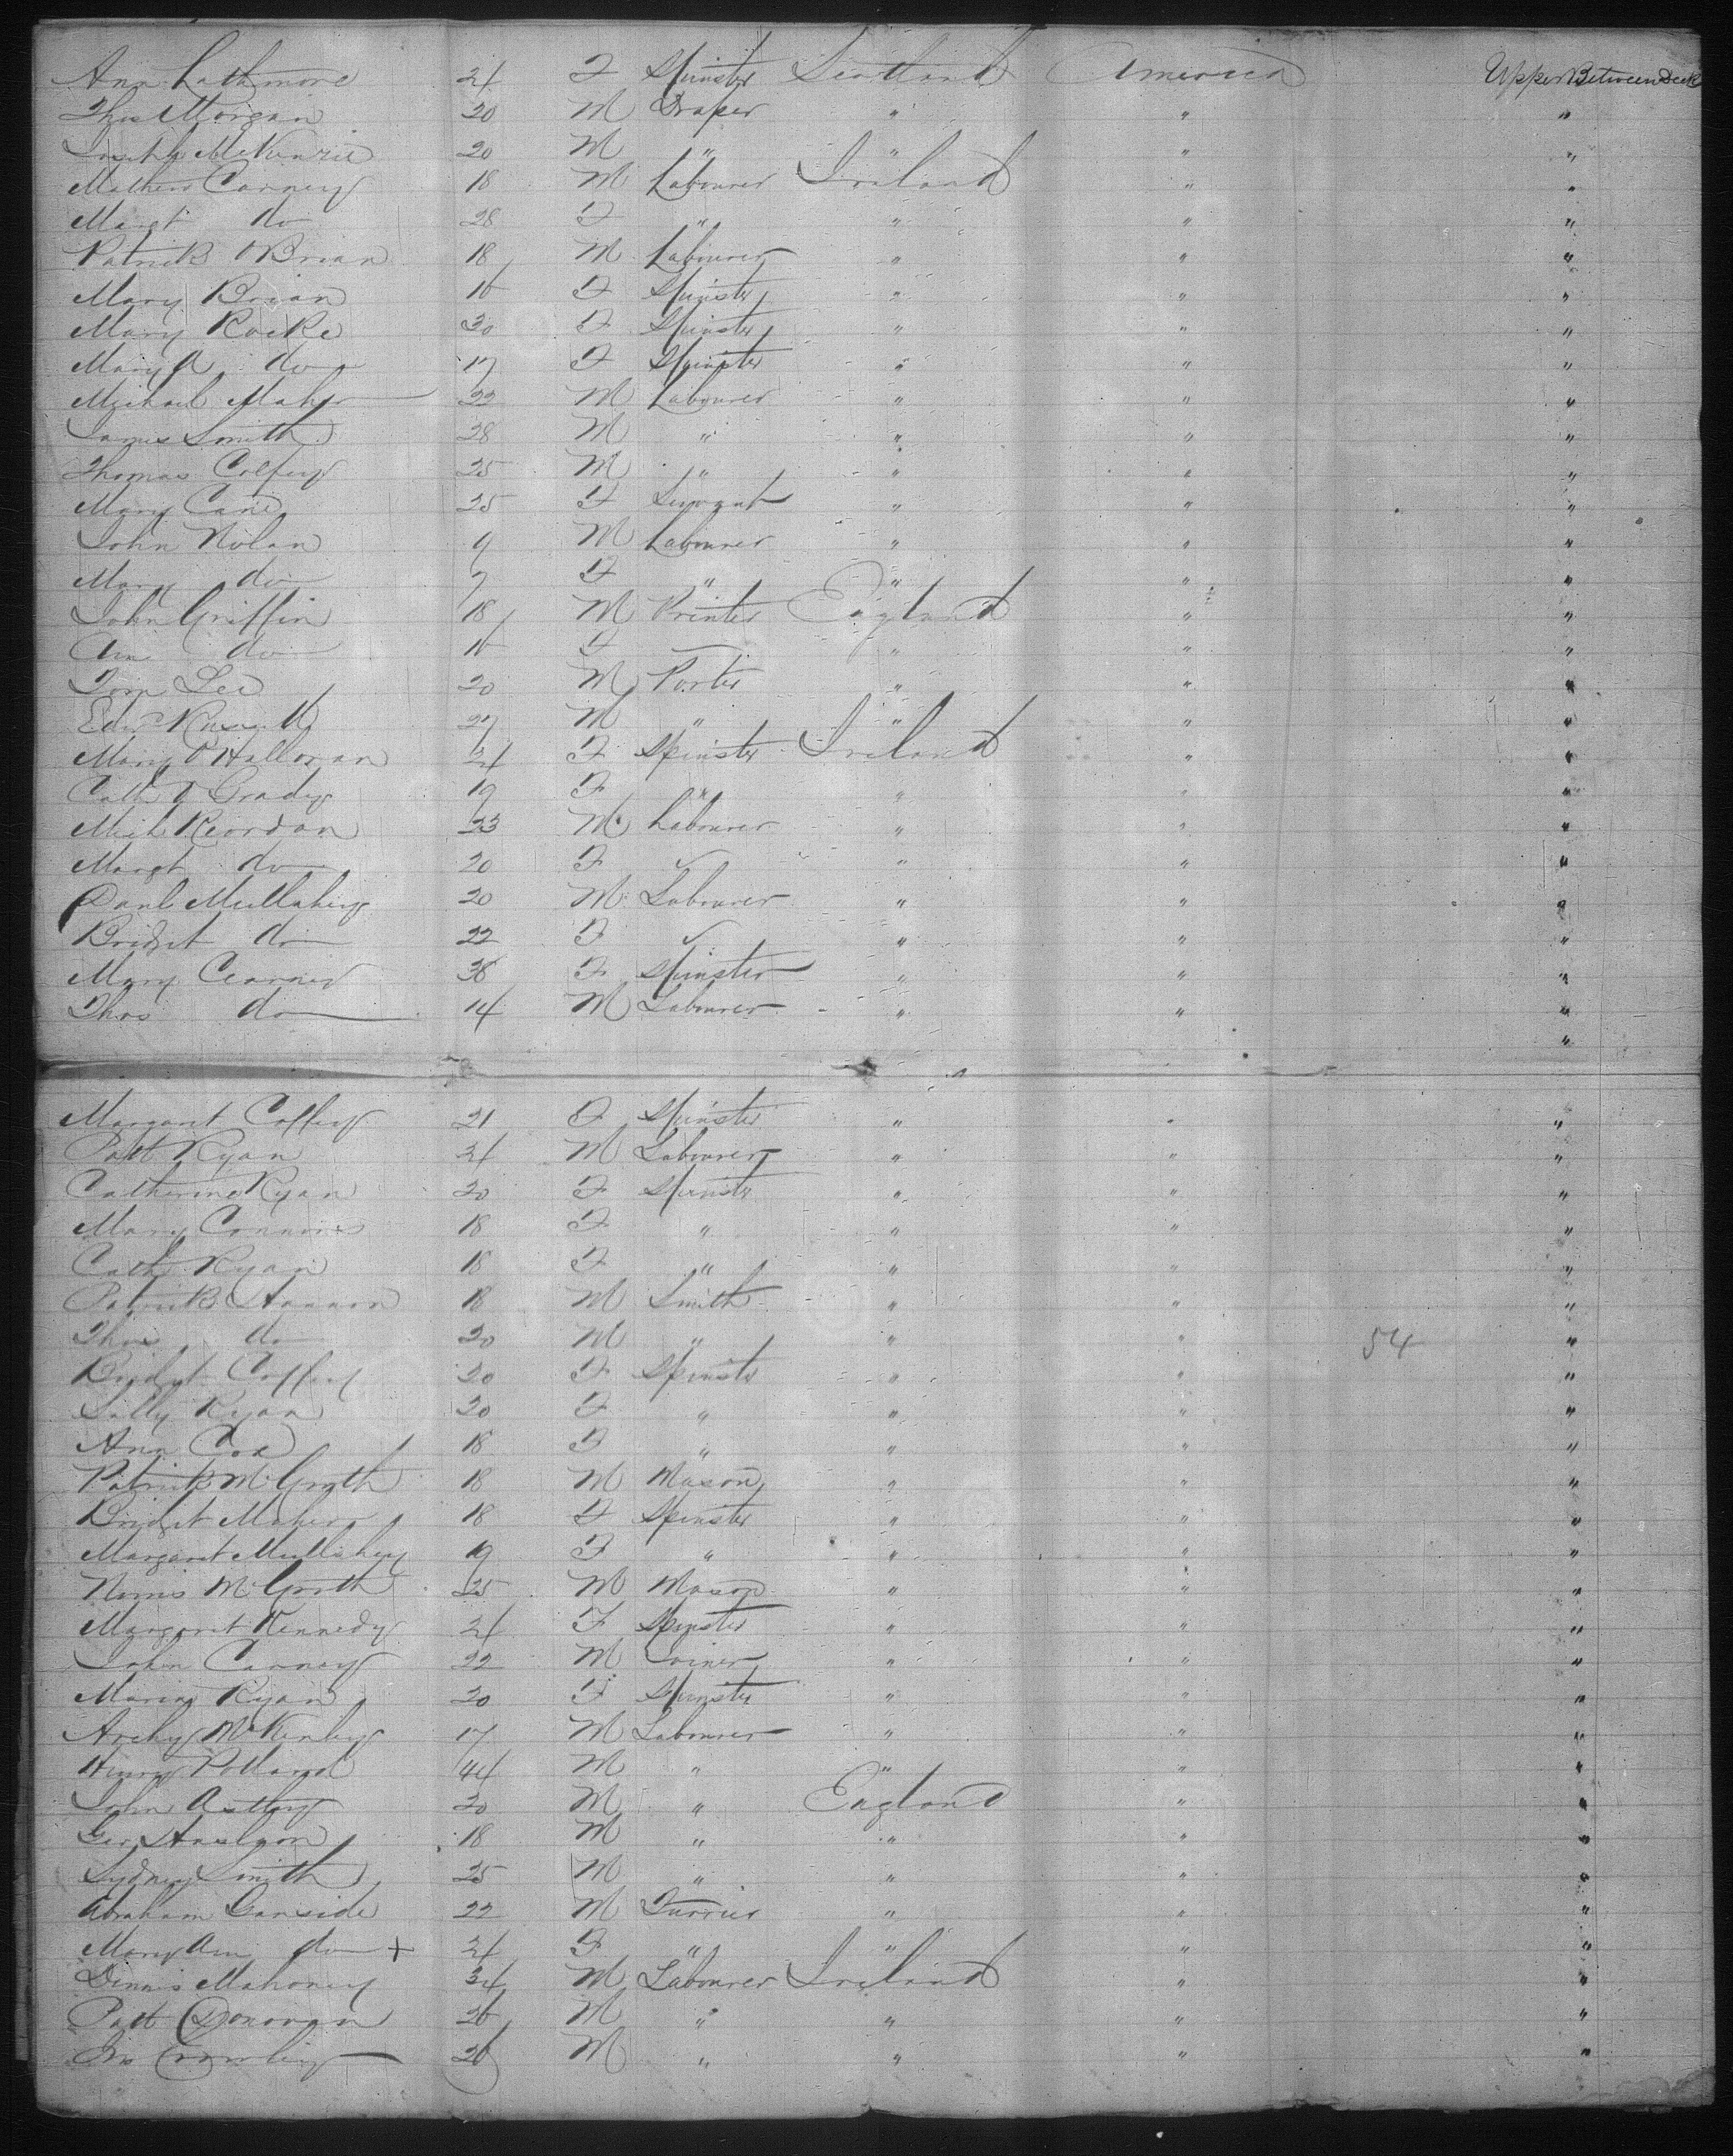 Ann Lathmore 21 F Spinster Scotland America Upper Between Deck
Thos Morgan 20 M Draper " " "
Joseph McKenzie 20 M " " " "
Mathew Carney 18 M Labourer Ireland " "
Margt do 28 F " " " "
Patrick O Brian 18 M Labourer " " "
Mary Brian 16 F Spinster " " "
Mary Rocke 30 F Spinster " " "
Mary A do 17 F Spinster " " "
Michael Maher 22 M Labourer " " "
James Smith 28 M " " " "
Thomas Coffey 25 M " " " "
Mary Cane 25 F Servant " " "
John Nolan 9 M Labourer " " "
Mary do 7 F " " " "
John Griffin 18 M Printer England " "
Ann do 16 F " " "
Tom Lee 20 M Porter " " "
Edwd 27 M " " " "
Mary O Halloran 21 F Spinster Ireland " "
Cath O Grady 19 F " " " "
Mich Reordan 23 M Labourer " " "
Margt do 20 F " " "
Danl Mullahey 20 M Labourer " " "
Bridget do 22 F " " "
Mary Cearney 36 F Spinster " " "
Thos do 14 M Labourer " " "
"
Margaret Coffey 21 F Spinster " " "
Patt Ryan 21 M Labourer " " "
Catherine Ryan 20 F Spinster " " "
Mary Connors 18 F " " " "
Cath Ryan 18 F " " " "
Patrick Hannon 18 M Smith " " "
Thos do 20 M " " " 54 "
Bridget Coffey 20 F Spinster " " "
Sally Ryan 20 F " " " "
Ann Cox 18 F " " " "
Patrick McGrath 18 M Mason " " "
Bridget Maher 18 F Spinster " " "
Margaret Mullahey 19 F " " " "
McGrath 25 M Mason " " "
Margaret Kennedy 21 F Spinster " " "
John Carney 22 M Joiner " " "
Maria Ryan 20 F Spinster " " "
Archy McKinley 17 M Labourer " " "
Henry Pollard 44 M " " " "
John Astley 20 M " England " "
Geo 18 M " " " "
Sydney Smith 25 M " " " "
Abraham Garside 22 M Furrier " " "
Mary Ann do + 21 F " " " "
Dennis Mahoney 34 M Labourer Ireland " "
Patt Donovan 26 M " " " "
Jas Crowley 26 M " " " "